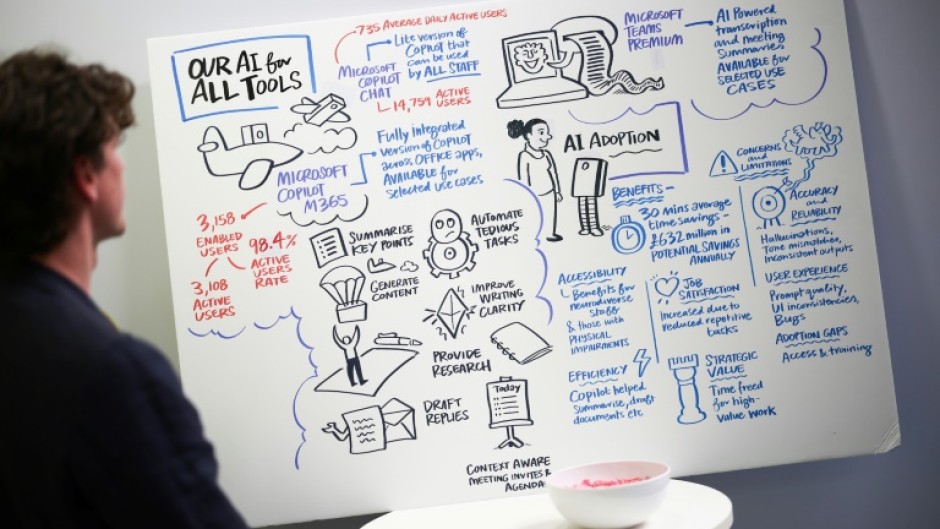 OUR AI for
ALL TOOLS
735 AVERAGE DAILY ACTIVE USERS
MICROSOFT
COPILOT
CHAT
Lite version of
Copilot that
can be used
by ALL STAFF
14,759 ACTIVE
USERS
MICROSOFT
COPILOT
M365
Fully integrated
version of COPILOT
across OFFICE apps,
AVAILABLE for
selected use cases
3,158
ENABLED
USERS
98.4%
ACTIVE
USERS
RATE
3,108
ACTIVE
USERS
SUMMARISE
KEY POINTS
AUTOMATE
TEDIOUS
TASKS
GENERATE
CONTENT
IMPROVE
WRITING
CLARITY
PROVIDE
RESEARCH
DRAFT
REPLIES
Today
CONTEXT AWARE
MEETING INVITES &
AGENDA
MICROSOFT
TEAMS
PREMIUM
AI Powered
transcription
and meeting
Summaries
AVAILABLE for
SELECTED USE
CASES
AI ADOPTION
BENEFITS -
30 mins average
time savings -
£632 million in
POTENTIAL SAVINGS
ANNUALLY
ACCESSIBILITY
Benefits for
neurodiverse
staff
& those with
PHYSICAL
IMPAIRMENTS
JOB
SATISFACTION
Increased due to
reduced repetitive
tasks
EFFICIENCY
Copilot helped
Summarise, draft
documents etc
STRATEGIC
VALUE
Time freed
for high-
value work
CONCERNS
and
LIMITATIONS
ACCURACY
and
RELIABILITY
Hallucinations,
Tone mismatches,
Inconsistent outputs
USER EXPERIENCE
Prompt quality,
UI inconsistencies,
Bugs
ADOPTION GAPS
Access & training